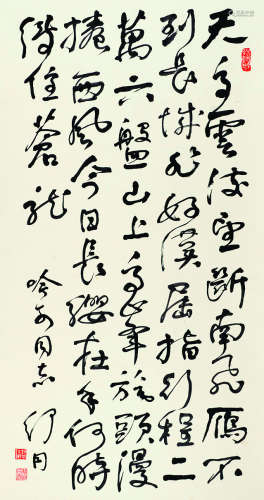 天高雲淡望斷南飛雁不
到長城非好漢屈指行程二
萬六盤山上高峯旄頭漫
捲西風今日長纓在手何時
縛住蒼龍
同志
舒同